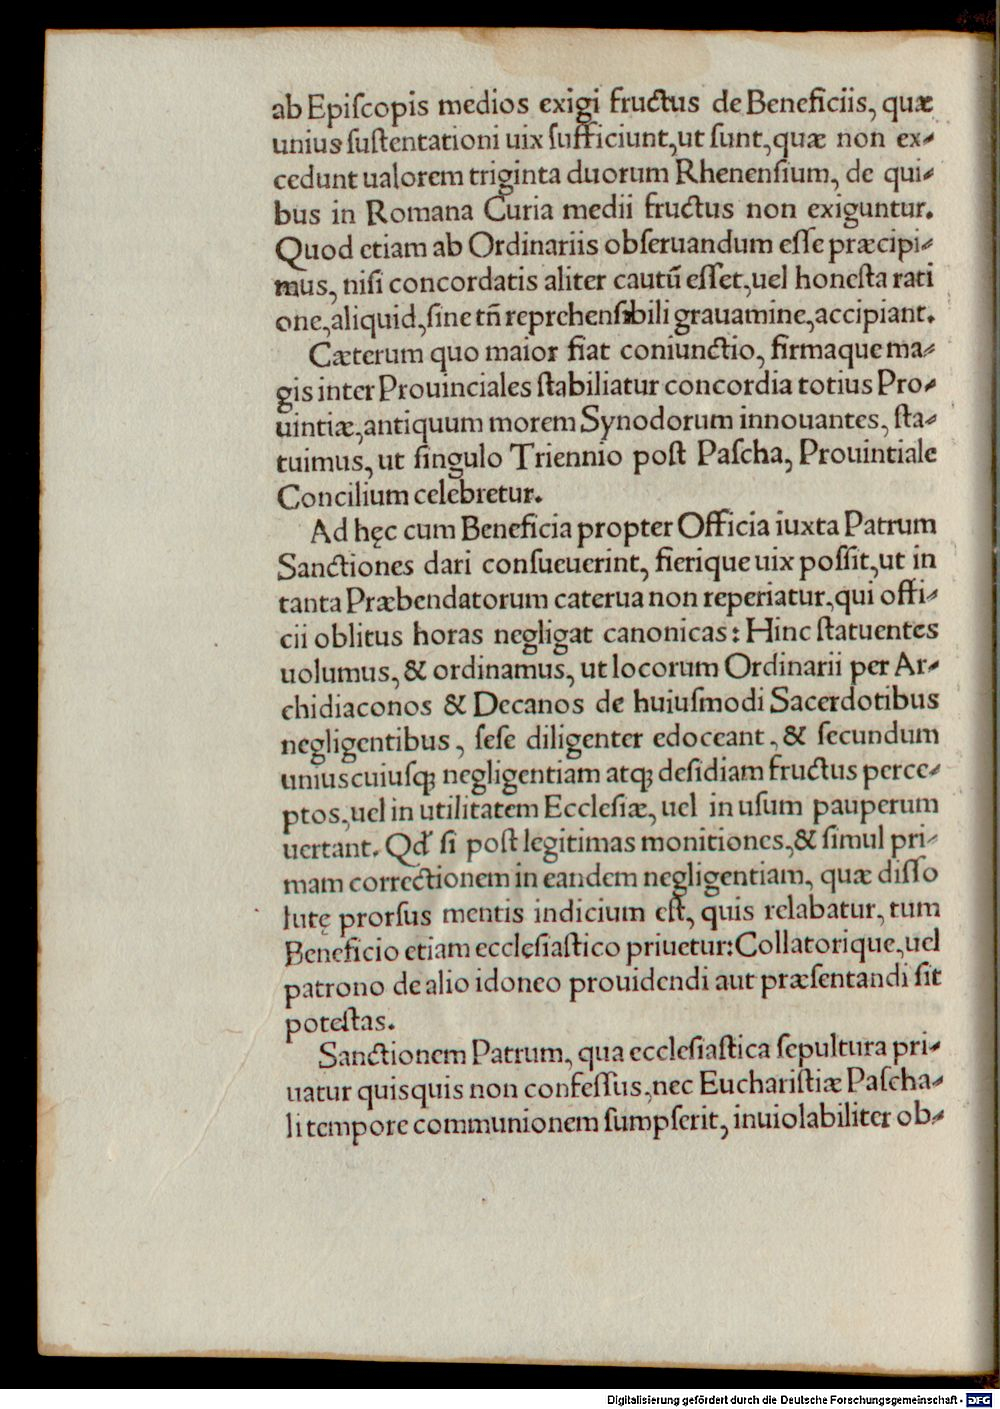 ab Epiſcopis medios exigi fructus de Beneficiis, quæ
unius ſuſtentationi uix ſufficiunt, ut ſunt, quæ non ex-
cedunt ualorem triginta duorum Rhenenſium, de qui-
bus in Romana Curia medii fructus non exiguntur.
Quod etiam ab Ordinariis obſeruandum eſſe præcipi-
mus, niſi concordatis aliter cautū eſſet, uel honeſta rati
one, aliquid, ſine tñ reprehenſibili grauamine, accipiant.
Cæterum quo maior fiat coniunctio, firmaque ma-
gis inter Prouinciales ſtabiliatur concordia totius Pro-
uintiæ, antiquum morem Synodorum innouantes, ſta-
tuimus, ut ſingulo Triennio poſt Paſcha, Prouintiale
Concilium celebretur.
Ad hęc cum Beneficia propter Officia iuxta Patrum
Sanctiones dari conſueuerint, fierique uix poſſit, ut in
tanta Præbendatorum caterua non reperiatur, qui offi-
cii oblitus horas negligat canonicas: Hinc ſtatuentes
uolumus, & ordinamus, ut locorum Ordinarii per Ar-
chidiaconos & Decanos de huiuſmodi Sacerdotibus
negligentibus, ſeſe diligenter edoceant, & ſecundum
uniuscuiuſqꝫ negligentiam atqꝫ deſidiam fructus perce-
ptos, uel in utilitatem Eccleſiæ, uel in uſum pauperum
uertant. Qd̕ ſi poſt legitimas monitiones, & ſimul pri-
mam correctionem in eandem negligentiam, quæ diſſo
lutę prorſus mentis indicium eſt, quis relabatur, tum
Beneficio etiam eccleſiaſtico priuetur: Collatorique, uel
patrono de alio idoneo prouidendi aut præſentandi ſit
poteſtas.
Sanctionem Patrum, qua eccleſiaſtica ſepultura pri-
uatur quisquis non confeſſus, nec Euchariſtiæ Paſcha-
li tempore communionem ſumpſerit, inuiolabiliter ob-
Digitalisierung gefördert durch die Deutsche Forschungsgemeinschaft - DFG